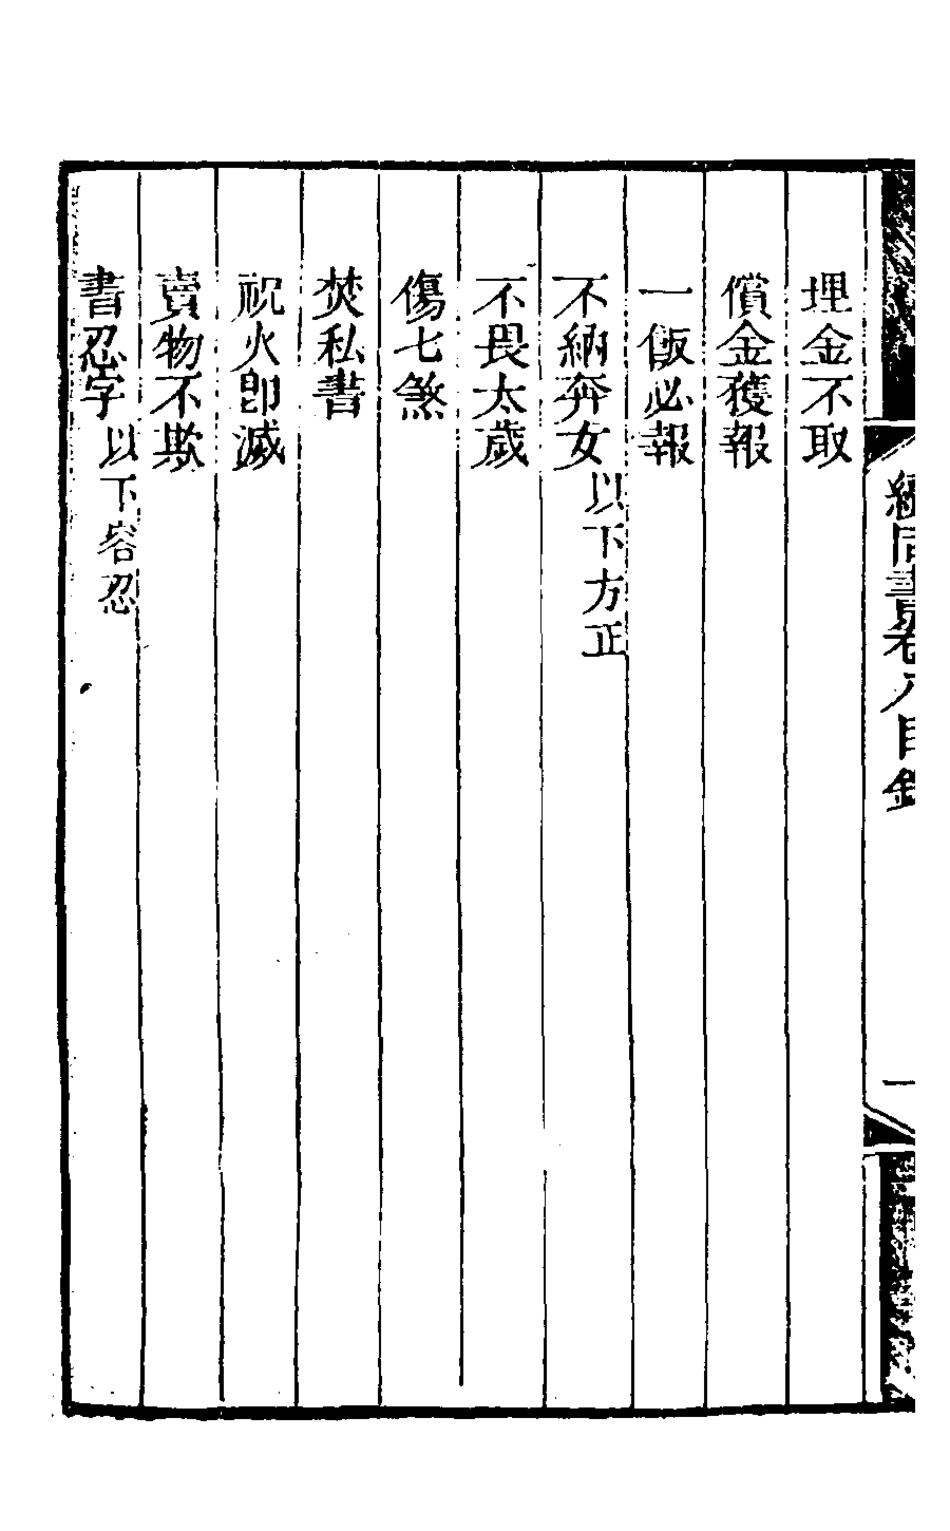 續同書卷八目錄
一
埋金不取
償金獲報
一飯必報
不納奔女以下方正
不畏太歲
傷七煞
焚私書
祝火卽滅
賣物不欺
書忍字以下容忍